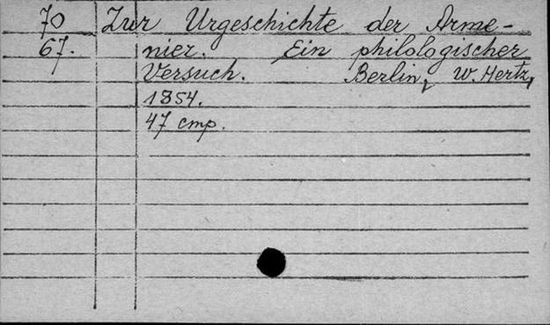 70 Zur Urgeschichte der Arme-
67. nier. Ein philologischer
Versuch. Berlin, W. Hertz,
1854.
47 cmp.